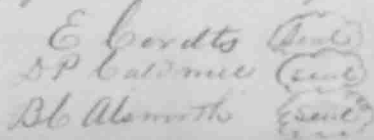 E Cordts (Seal)
D P Caldwell (seal)
B C Alsworth (seal)